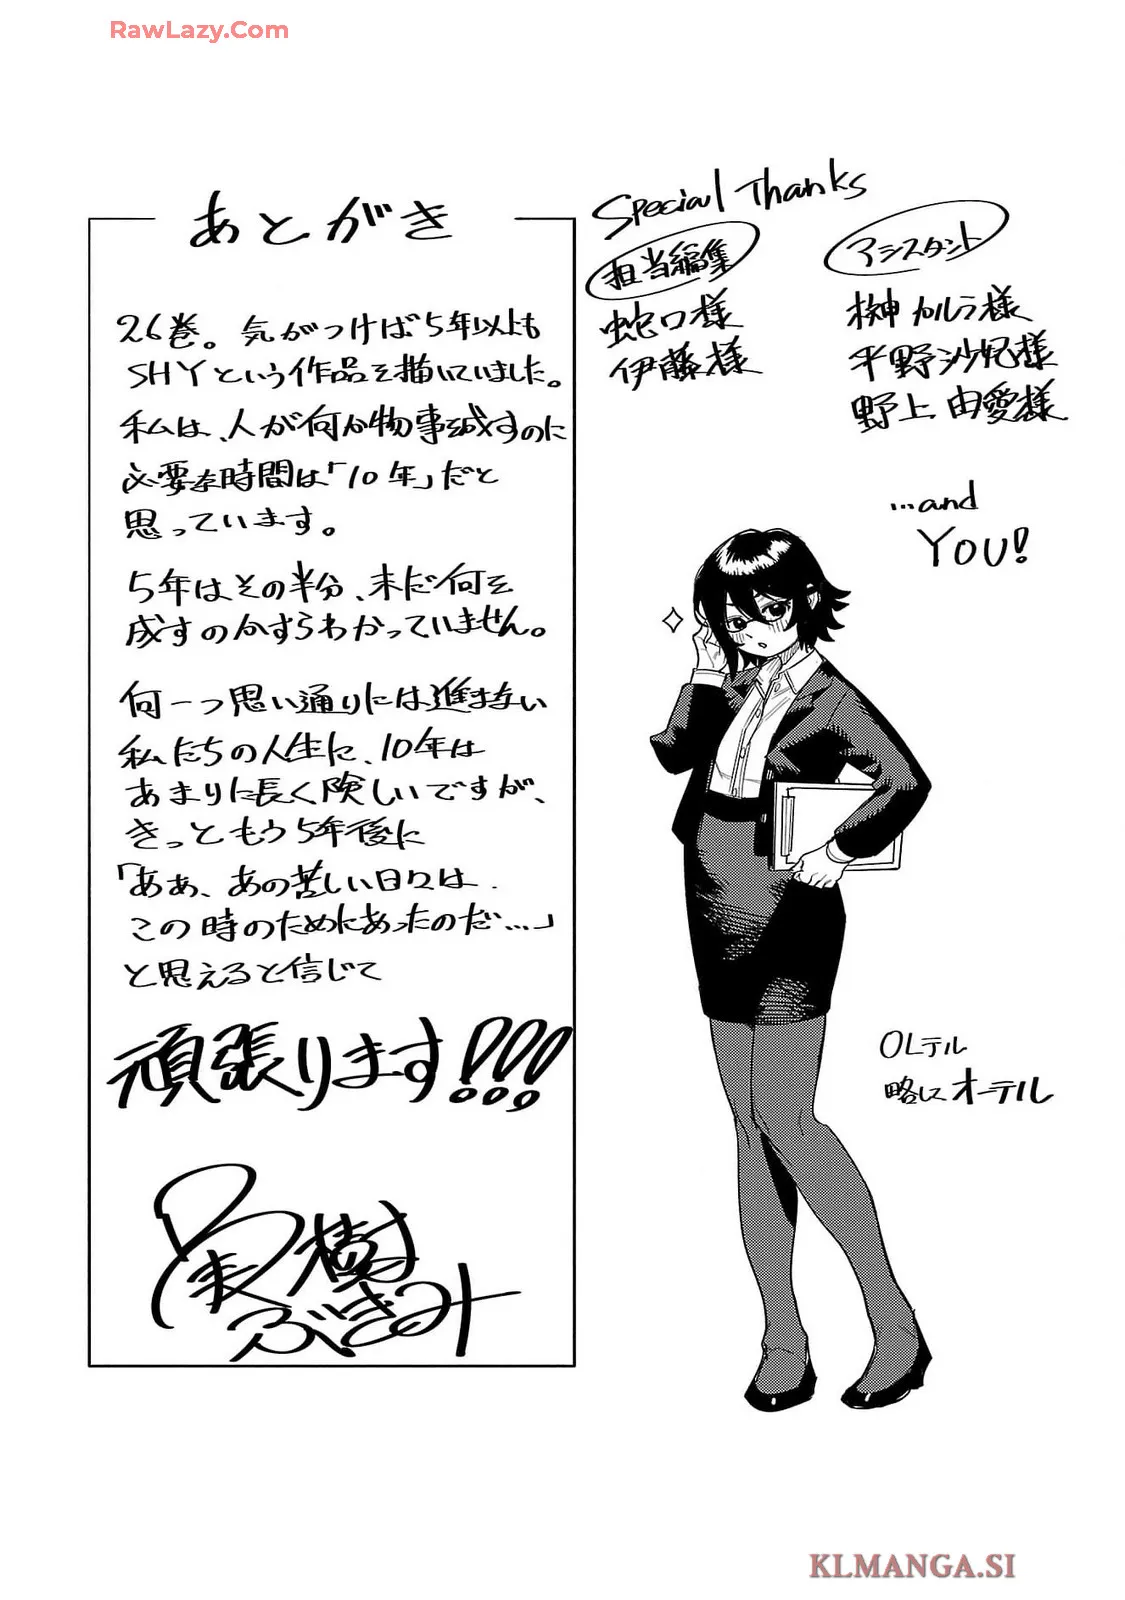 RawLazy.Com
あとがき
26巻。気がつけば5年以上も
SHYという作品を描いていました。
私は、人が何か物事を成すのに
必要な時間は「10年」だと
思っています。
5年はその半分、未だ何を
成すのかすらわかっていません。
何一つ思い通りには進まない
私たちの人生に、10年は
あまりに長く険しいですが、
きっともう5年後に
「ああ、あの苦しい日々は
この時のためにあったのだ…」
と思えると信じて
頑張ります!!!
実樹
ぶきみ
Special Thanks
担当編集
蛇口様
伊藤様
アシスタント
榊カルラ様
平野沙妃様
野上由愛様
…and
YOU!
OLテル
略してオーテル
KLMANGA.SI